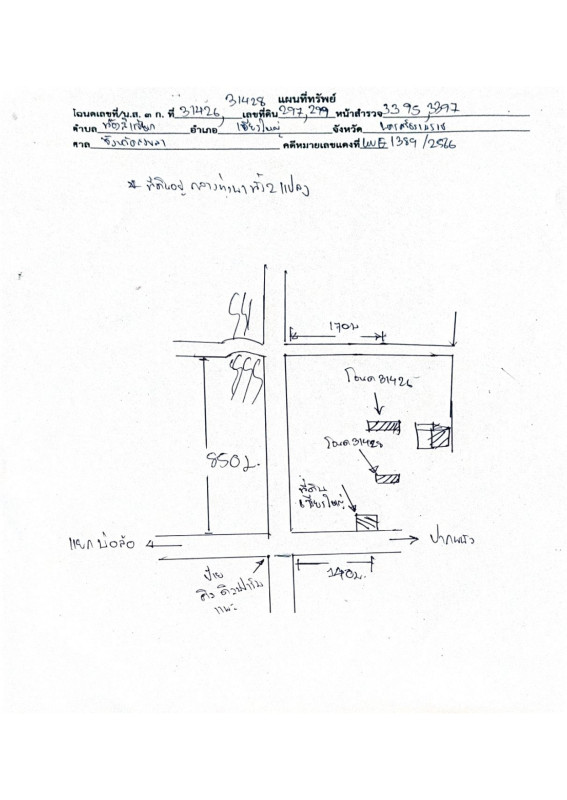 แผนที่ทรัพย์
31428
โฉนดเลขที่/น.ส. ๓ ก. ที่ 31426, เลขที่ดิน 297,299 หน้าสำรวจ 3395,3397
ตำบล อำเภอ เชียรใหญ่ จังหวัด นครศรีธรรมราช
ศาล จังหวัดสงขลา คดีหมายเลขแดงที่ 1389/2566
* ที่ดินอยู่ กลางทุ่งนา ทั้ง 2 แปลง
170ม
โฉนด 31426
850ม.
โฉนด 31428
ที่ดิน
เชียรใหญ่
แยกบ่อล้อ
ปากพนัง
140ม.
ป้าย